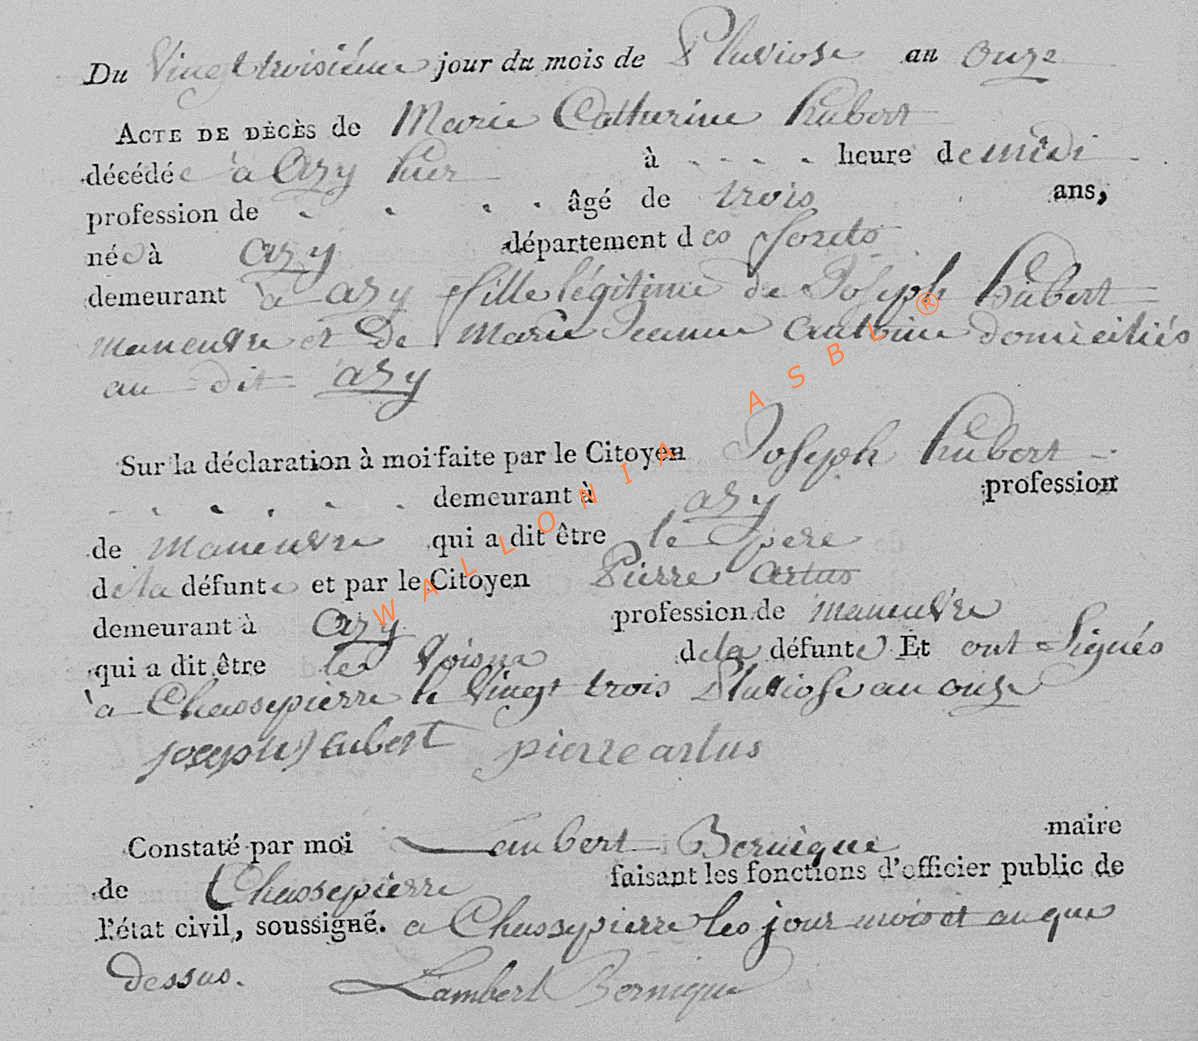 Du Vingt troisiéme jour du mois de Pluviose an onze
ACTE DE DÉCÈS de Marie Catherine hubert
décédée à Azy hier à - - - - heure de midi
profession de - - - - âgé de trois ans,
née à azy département des forets
demeurant à azy fille légitime de Joseph hubert
maneuvre et de Marie Jeanne Antoine domiciliés
au dit azy
Sur la déclaration à moi faite par le Citoyen Joseph hubert
demeurant à azy profession
de maneuvre qui a dit être le pere
de la défunte et par le Citoyen Pierre artus
demeurant à azy profession de maneuvre
qui a dit être de la défunte Et ont Signés
à Chassepierre le Vingt trois Pluviose an onze
joseph hubert pierre artus
Constaté par moi Lambert Bernique maire
de Chassepierre faisant les fonctions d'officier public de
l'état civil, soussigné. a Chassepierre les jour mois et an que
dessus. Lambert Bernique
WALLONIA ASBL®